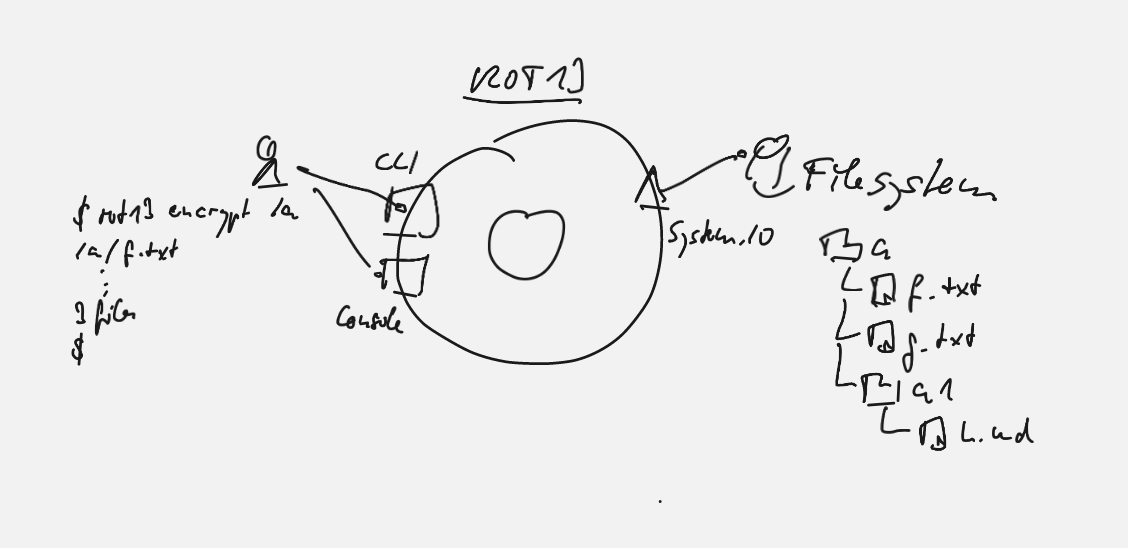 ROT13
CLI
$ rot13 encrypt /a
/a/f.txt
3 files
$
Console
System.IO
Filesystem
a
f.txt
g.txt
a1
h.md